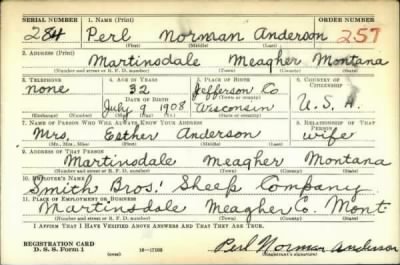 SERIAL NUMBER 1. NAME (Print) ORDER NUMBER
284 Perl Norman Anderson 257
(First) (Middle) (Last)
2. ADDRESS (Print)
Martinsdale Meagher Montana
(Number and street or R. F. D. number) (Town) (County) (State)
3. TELEPHONE 4. AGE IN YEARS 5. PLACE OF BIRTH 6. COUNTRY OF CITIZENSHIP
none 32 Jefferson Co.
DATE OF BIRTH
July 9 1908 Wisconsin U.S.A.
(Mo.) (Day) (Yr.)
7. NAME OF PERSON WHO WILL ALWAYS KNOW YOUR ADDRESS 8. RELATIONSHIP OF THAT PERSON
Mrs. Esther Anderson wife
(Mr., Mrs., Miss) (First) (Middle) (Last)
9. ADDRESS OF THAT PERSON
Martinsdale Meagher Montana
(Number and street or R. F. D. number) (Town) (County) (State)
10. EMPLOYER'S NAME
Smith Bros.' Sheep Company
11. PLACE OF EMPLOYMENT OR BUSINESS
Martinsdale Meagher Co. Mont.
(Number and street or R. F. D. number) (Town) (County) (State)
I AFFIRM THAT I HAVE VERIFIED ABOVE ANSWERS AND THAT THEY ARE TRUE.
REGISTRATION CARD
D. S. S. Form 1 (over) Perl Norman Anderson
(Registrant's signature)